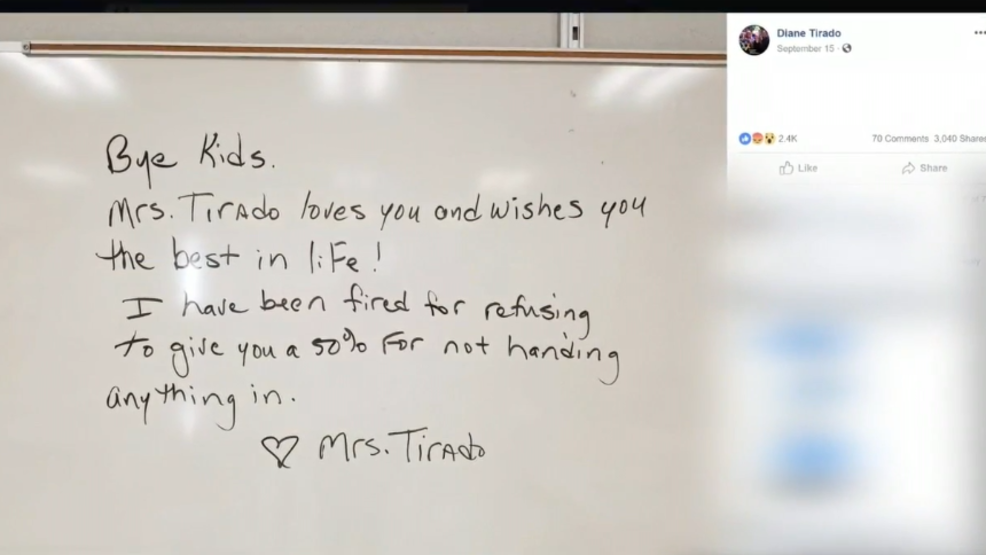 Bye Kids.
Mrs. Tirado loves you and wishes you
the best in life!
I have been fired for refusing
to give you a 50% for not handing
anything in.
♡ Mrs. Tirado
Diane Tirado
September 15
2.4K 70 Comments 3,040 Shares
Like Share